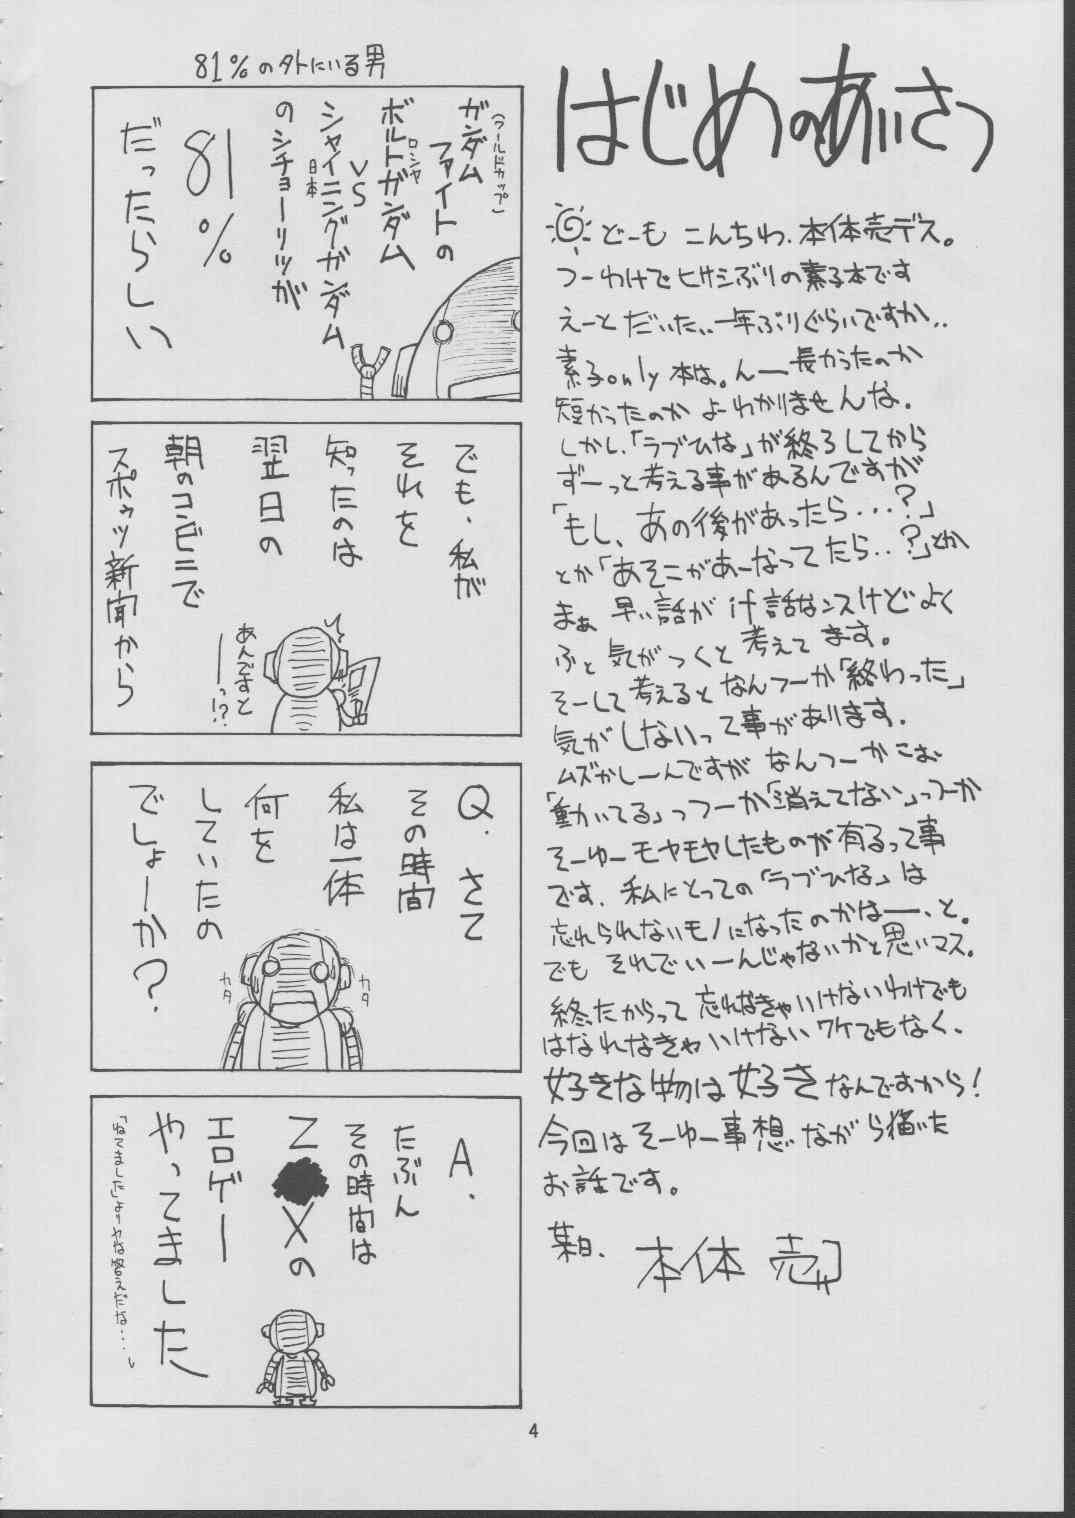 はじめのあいさつ
どーも こんちわ、本体売デス。
つーわけでヒサシぶりの素子本です
えーと だいたい、一年ぶりぐらいですか、、
素子only本は。んー長かったのか
短かったのか よーわかりませんな。
しかし、「ラブひな」が終ろしてから
ずーっと考える事があるんですが
「もし、あの後があったら...?」
とか「あそこがあーなってたら..?」とか
まぁ 早い話が if話なンスけど よく
ふと気がつくと 考えてます。
そーして考えるとなんつーか「終わった」
気がしないって事があります。
ムズかしーんですが なんつーか こお
「動いてる」っつーか「消えてない」っつーか
そーゆーモヤモヤしたものが有るって事
です、私にとっての「ラブひな」は
忘れられないモノになったのかはー、と。
でも それでいーんじゃないかと思いマス。
終ったからって 忘れなきゃいけないわけでも
はなれなきゃいけない ワケでもなく、
好きな物は好きなんですから!
今回は そーゆー事想いながら描いた
お話です。
某日、 本体 売
81%のタトにいる男
(ワールドカップ)
ガンダム
ファイトの
ロシヤ
ボルトガンダム
VS
日本
シャイニングガンダム
のシチョーリツが
81%
だったらしい
でも、私が
それを
知ったのは
翌日の
朝のコンビニで
スポゥツ新聞から
あんですと
ーっ!?
Q. さて
その時間
私は一体
何を
していたの
でしょーか?
カタ
カタ
A.
たぶん
その時間は
Z Xの
エロゲー
やってました
「ねてました」よりヤな答えだな...
4